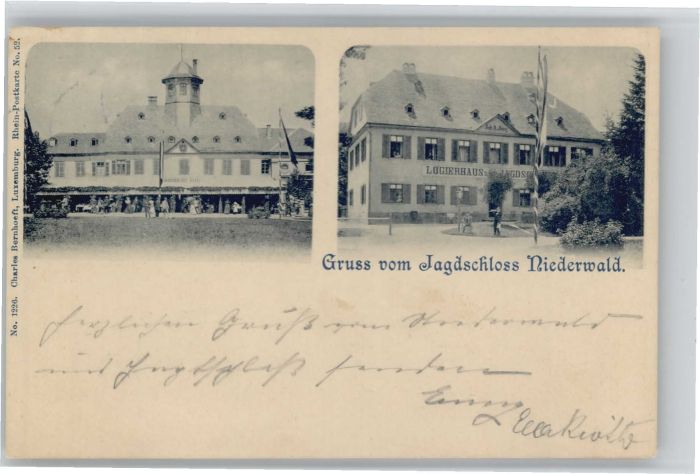 No. 1226. Charles Bernhoeft, Luxemburg. Rhein-Postkarte No. 52.
LOGIERHAUS
Gruss vom Jagdschloss Niederwald.
Herzlichen Gruß vom Niederwald
und Jagdschloß senden
Ella